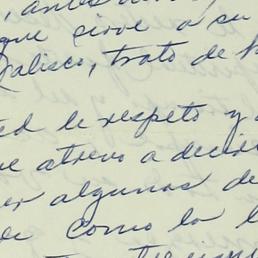 , antes
que sirve a su
Jalisco, trato de
ed de respeto y
e atrevo a decir
er algunas de
de como la l